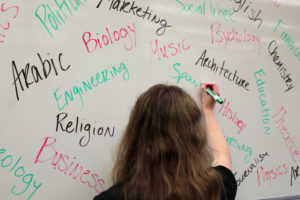 Political
Marketing
Social Work
English
Biology
Music
Psychology
Chemistry
Arabic
Architecture
Engineering
Spanish
Education
History
Theatre
Religion
Nursing
Journalism
Business
Physics